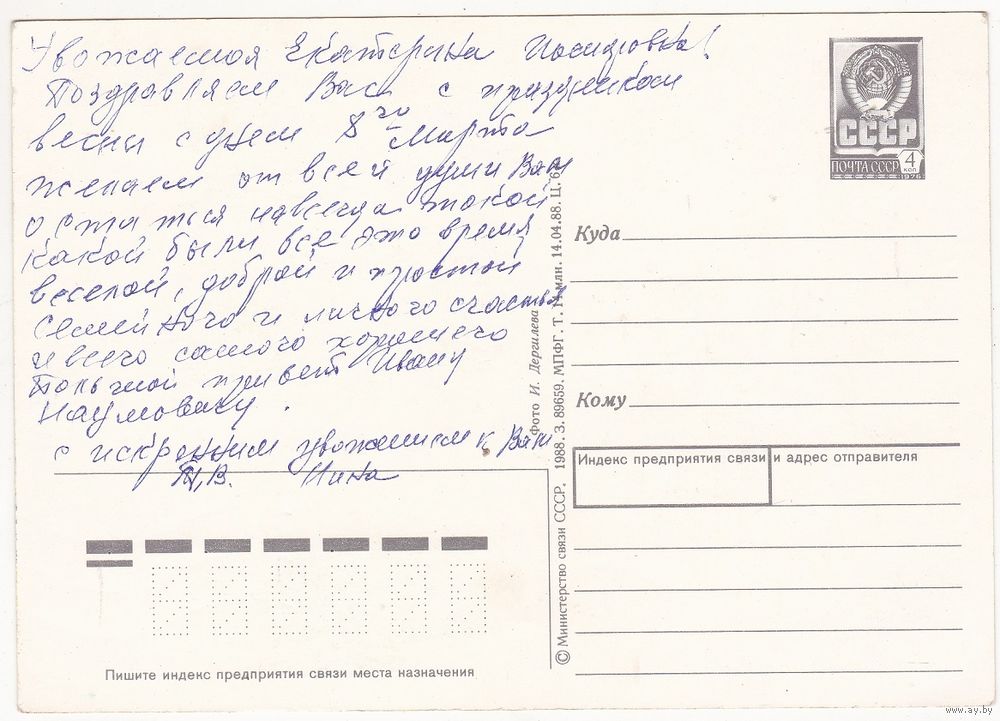 Уважаемая Екатерина
Поздравляем Вас с праздником
весны с днем 8го Марта
желаем от всей души Вам
остаться навсегда такой
какой были все это время
веселой, доброй и простой
семейного и личного счастья
и всего самого хорошего
большой привет Ивану
Наумовичу.
с искренним уважением к Вам
Нина
СССР
ПОЧТА СССР 4 коп
1976
Куда
Кому
Индекс предприятия связи и адрес отправителя
Пишите индекс предприятия связи места назначения
© Министерство связи СССР. 1988. З. 89659. МПФГ. Т. млн. 14.04.88. Ц.
Фото И. Дергилева
www.ay.by